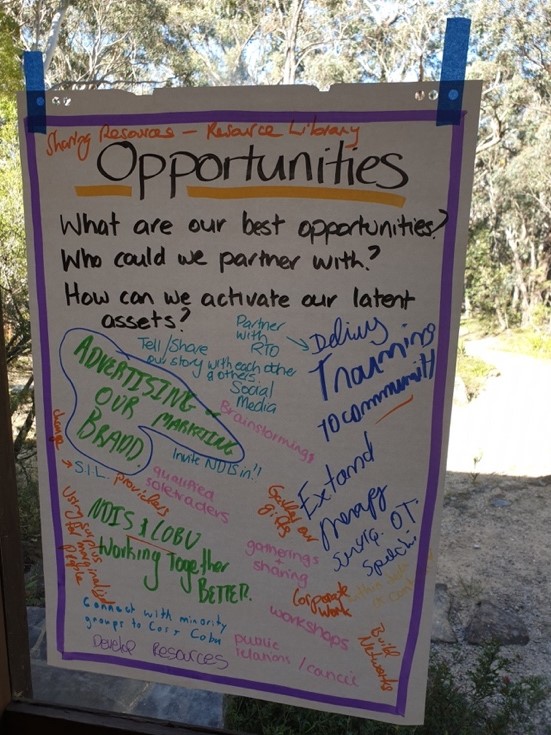 Sharing Resources — Resource Library
Opportunities
What are our best opportunities?
Who could we partner with?
How can we activate our latent
assets?
Partner
with
RTO
→ Delivery
Training
to community
Tell/Share
our story with each other
& others.
Social
Media
ADVERTISING -
OUR MARKETING
BRAND.
Brainstorming
Invite NDIS in!!
change
→ S.I.L. providers
qualified
soletraders
Extand
therapy
O.T.
Speech
NDIS & COBU
Working Together
BETTER.
gatherings
+
sharing
Corporate
Work
workshops
Connect with minority
groups to
Develop Resources
public
relations /
Build
Networks